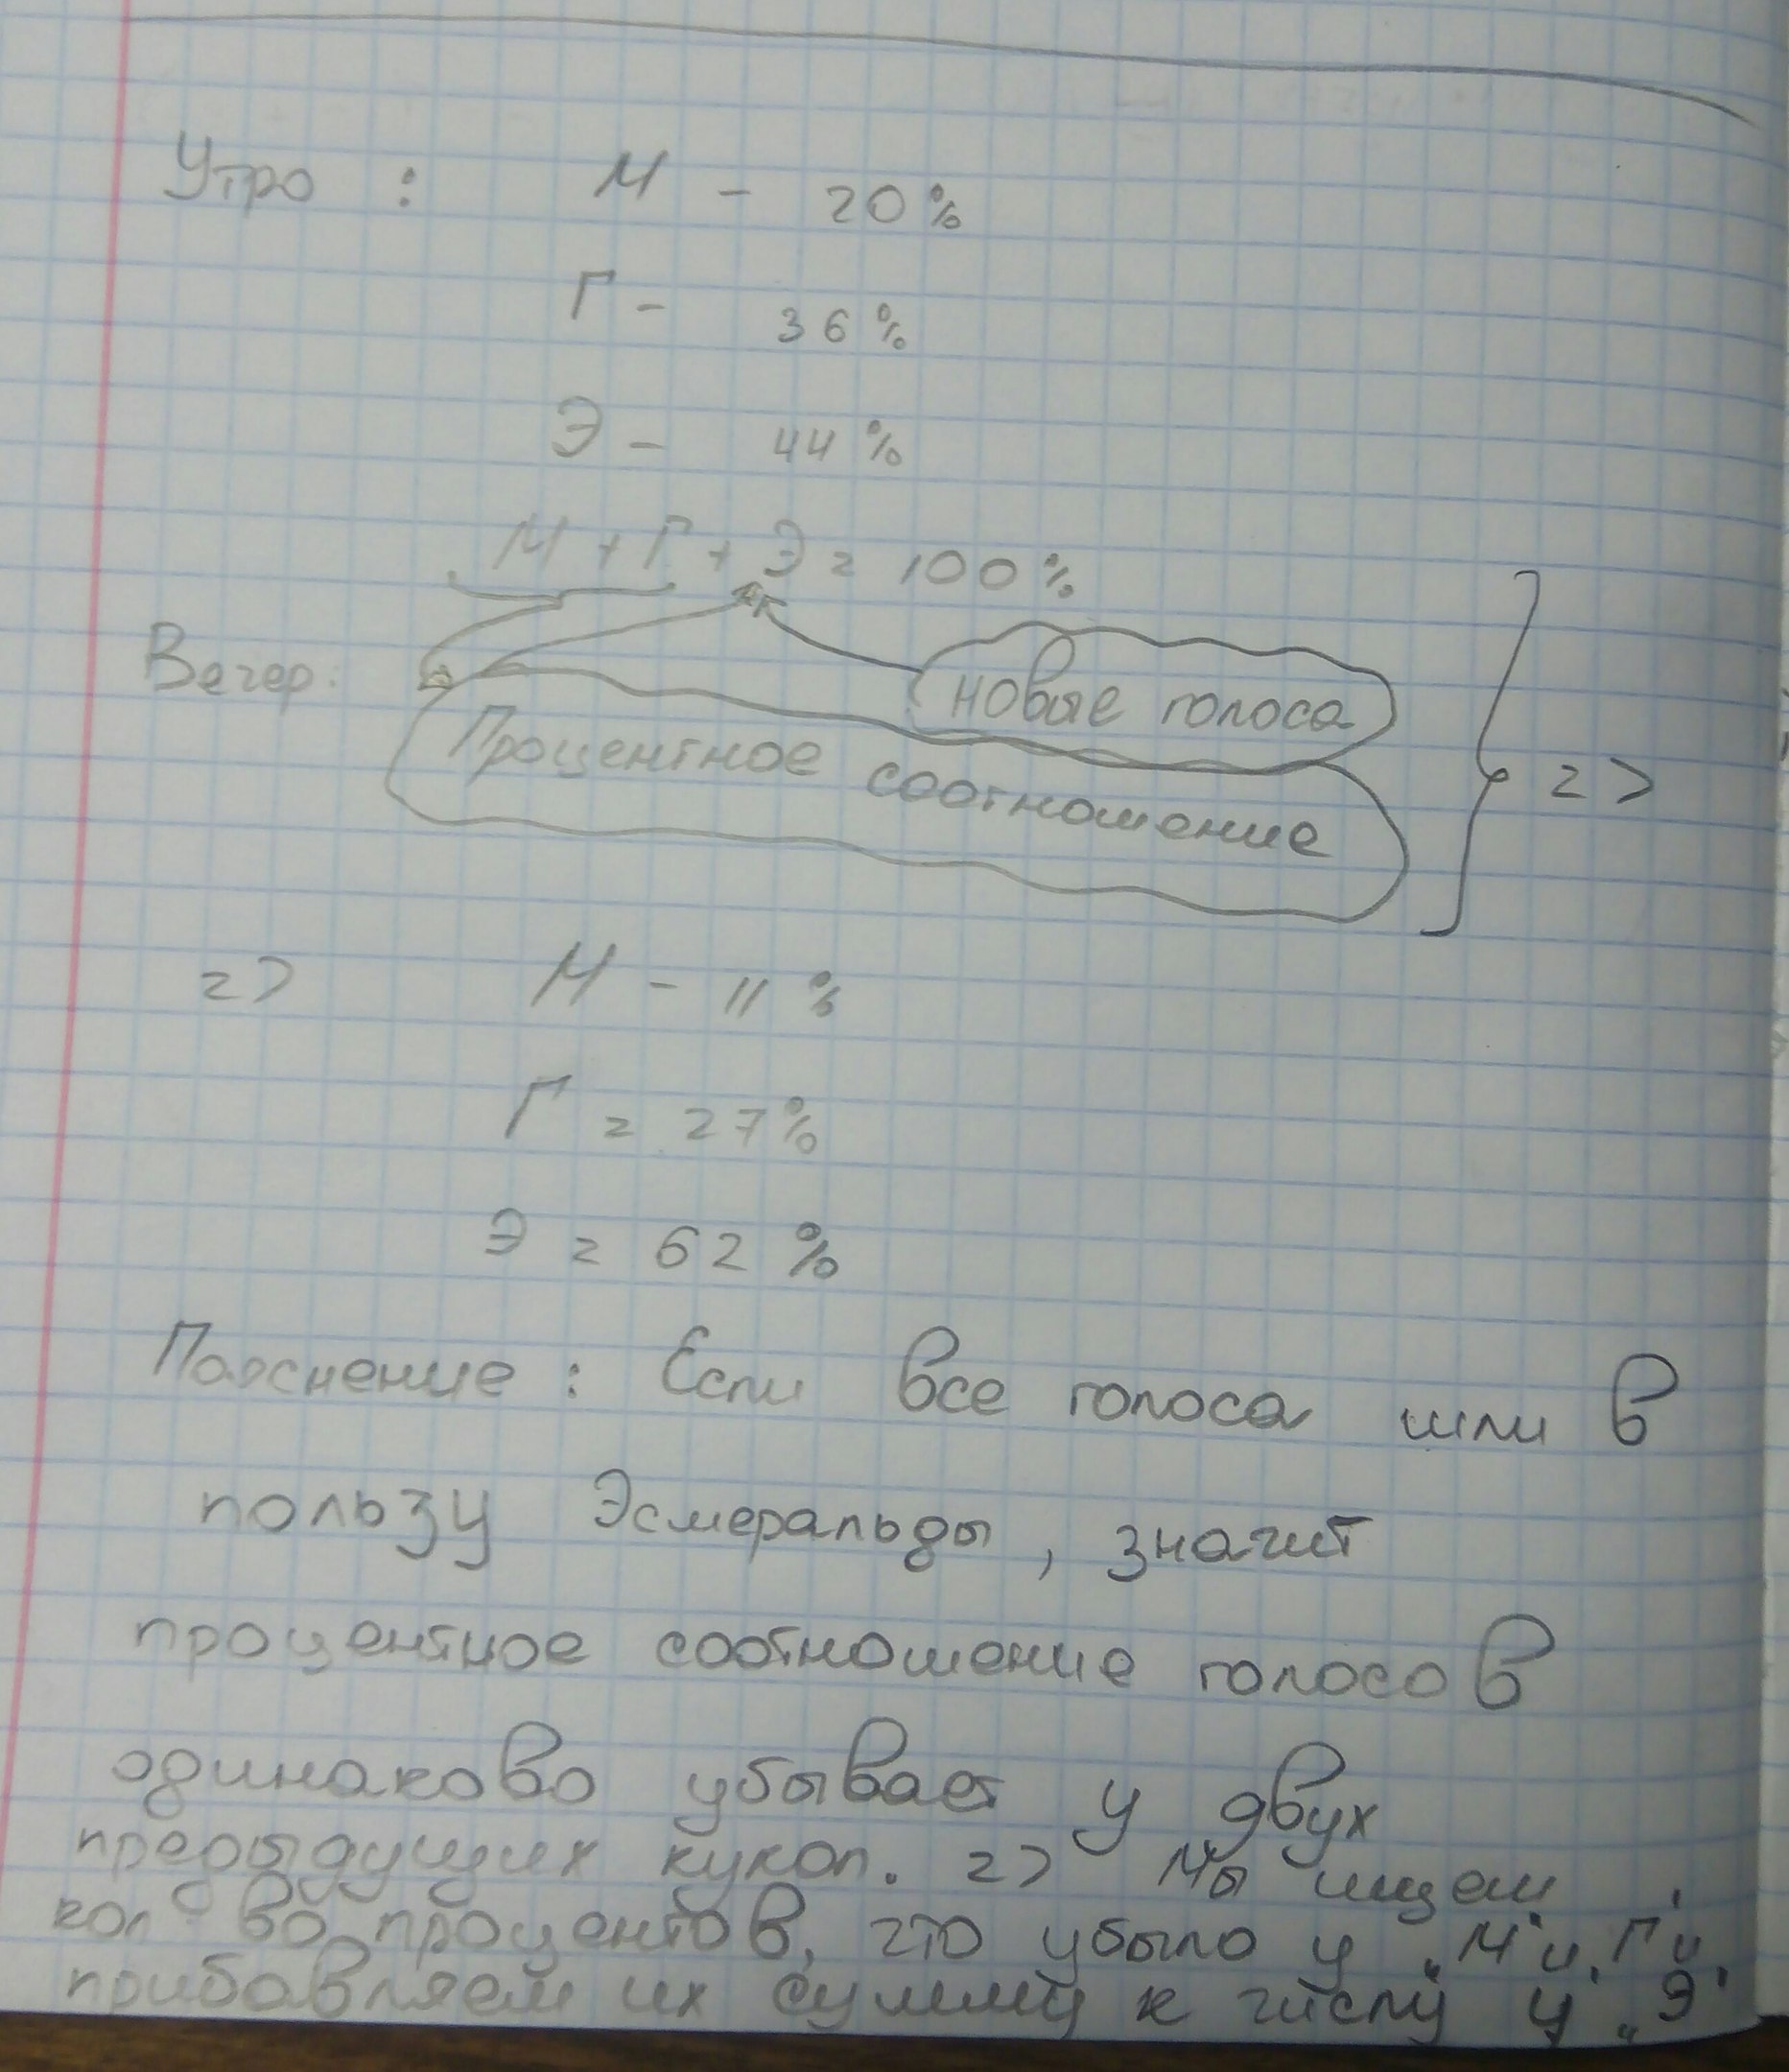 Утро : М - 20%
Г - 36%
Э - 44%
М + Г + Э = 100%
Вечер:
новые голоса
Процентное соотношение
=>
=> М - 11%
Г = 27%
Э = 62%
Пояснение : Если все голоса шли в
пользу Эсмеральды, значит
процентное соотношение голосов
одинаково убывает у двух
предыдущих кукол. => Мы ищем
кол-во процентов, что убыло у „М" и „Г" и
прибавляем их сумму к числу у „Э"